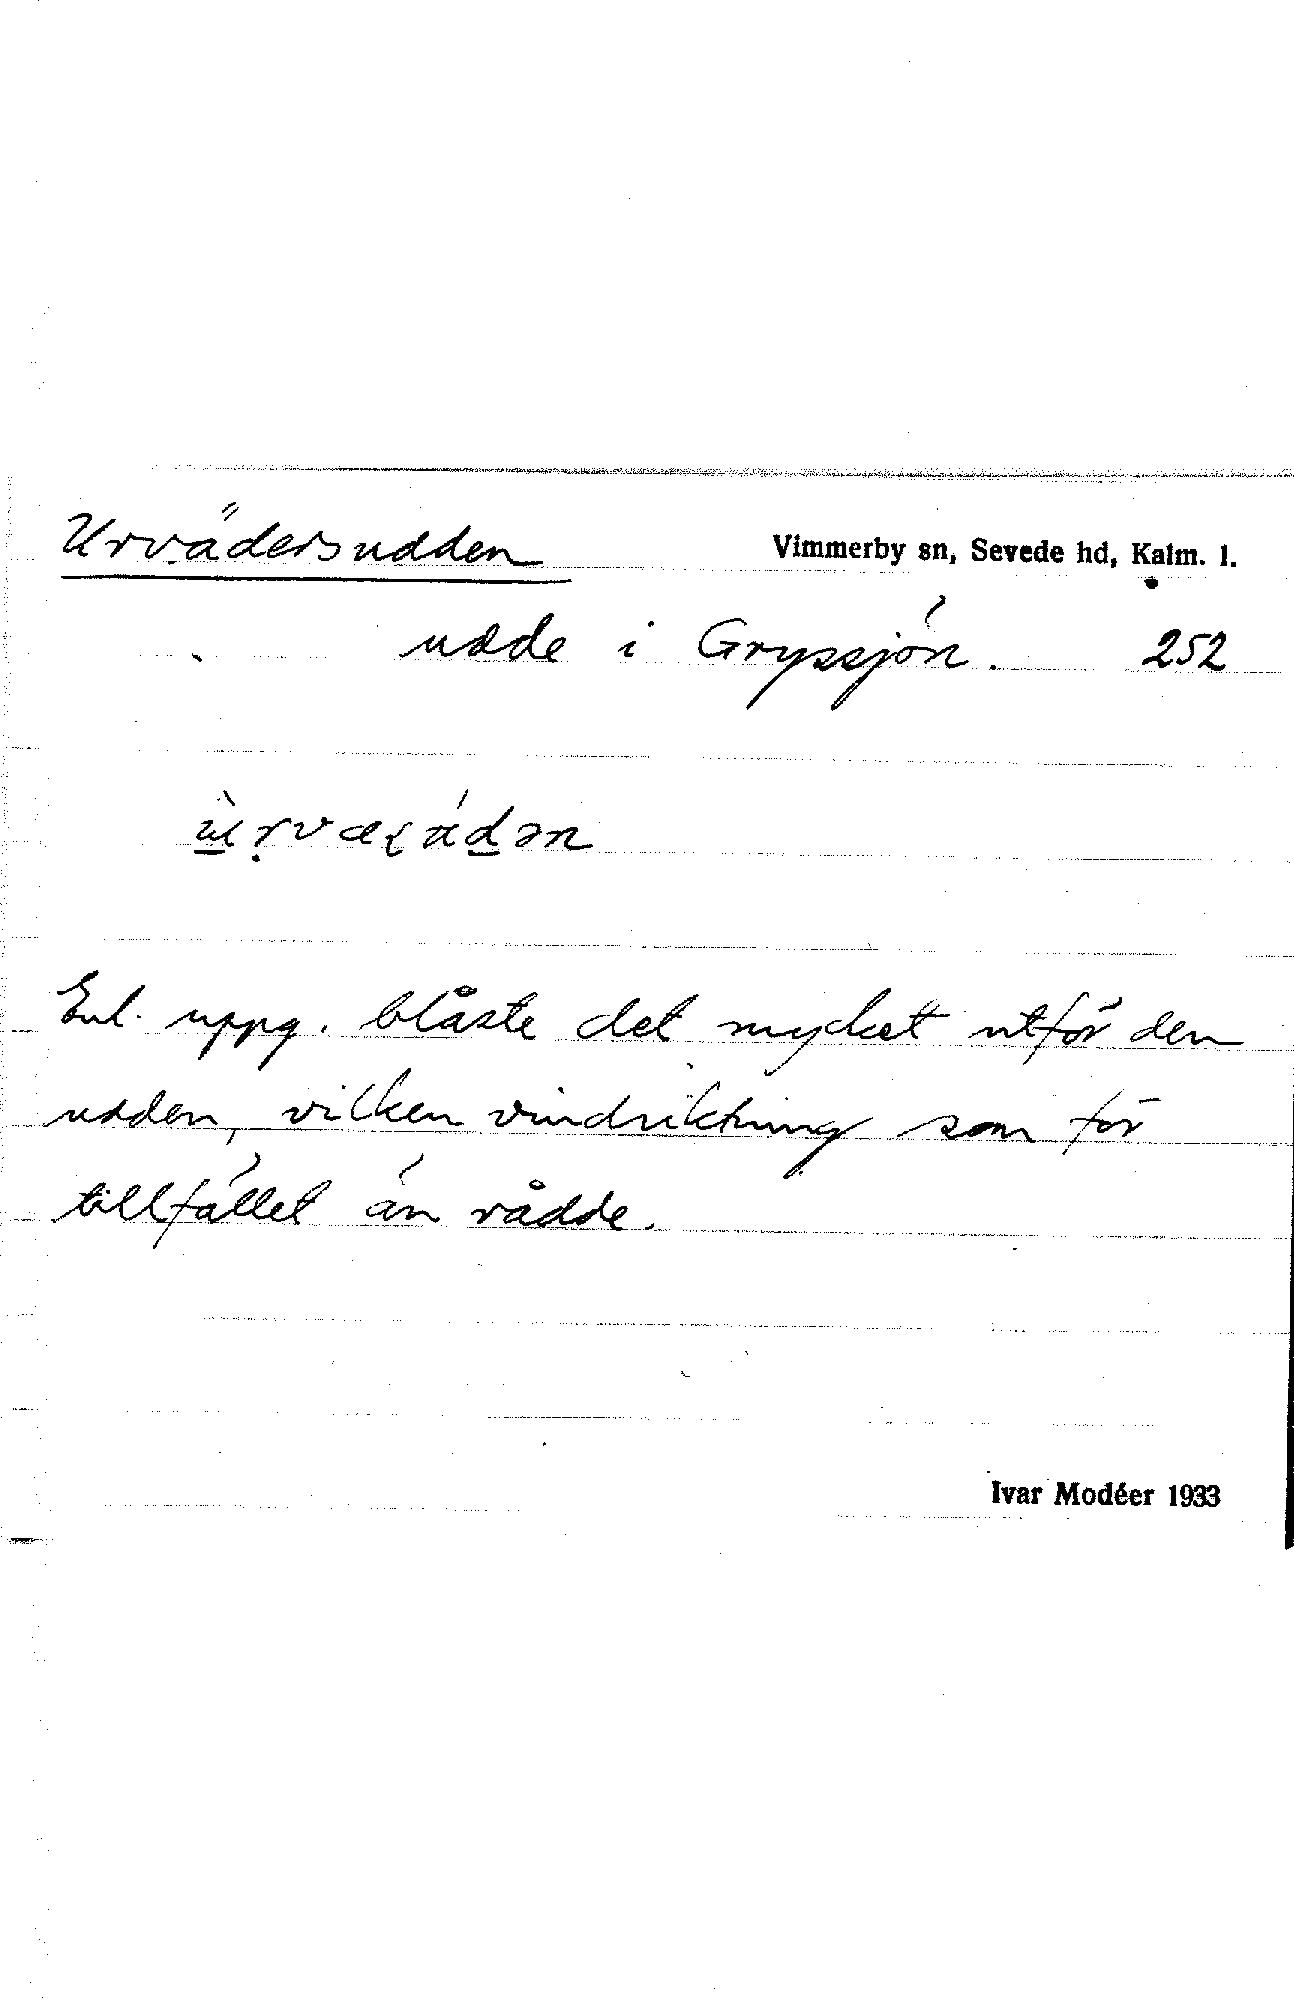 Urvädersudden Vimmerby sn, Sevede hd, Kalm. l.
udde i Gryssjön. 252
Enl. uppg. blåste det mycket utför den
udden, vilken vindriktning som för
tillfället än rådde.
Ivar Modéer 1933